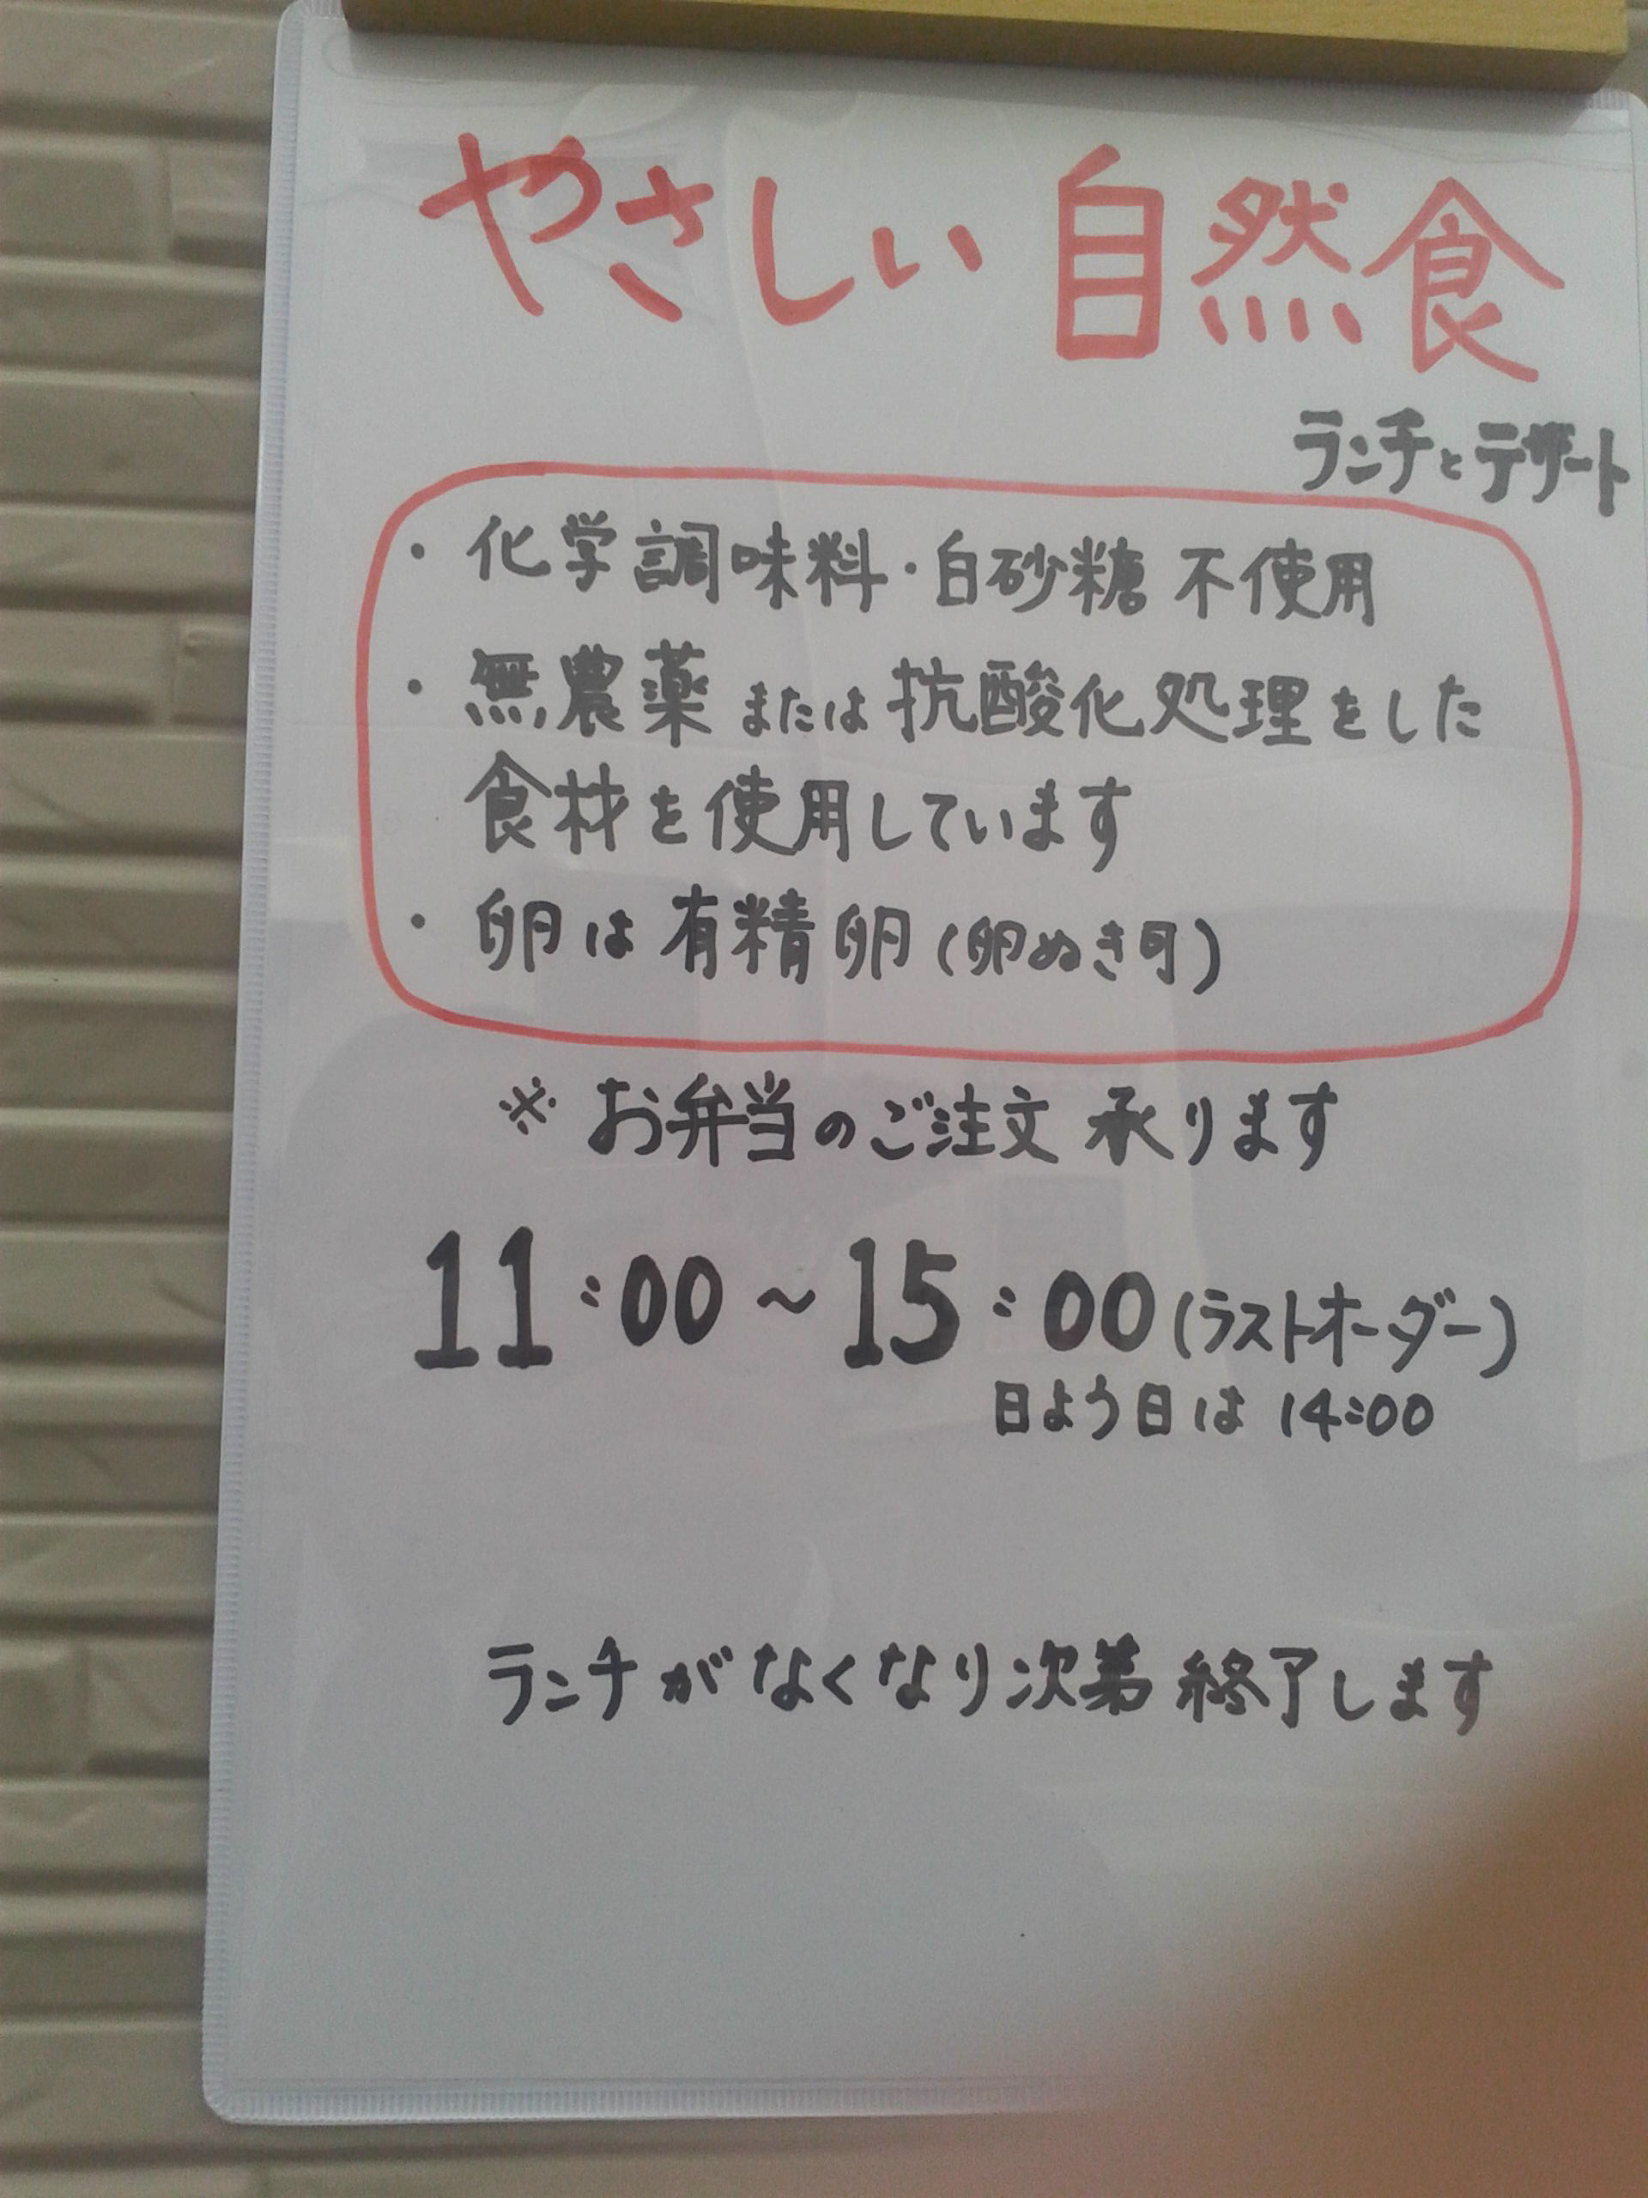 やさしい自然食
ランチとデザート
・化学調味料・白砂糖 不使用
・無農薬または抗酸化処理をした
食材を使用しています
・卵は有精卵(卵ぬき可)
※お弁当のご注文 承ります
11:00～15:00(ラストオーダー)
日よう日は 14:00
ランチがなくなり次第 終了します